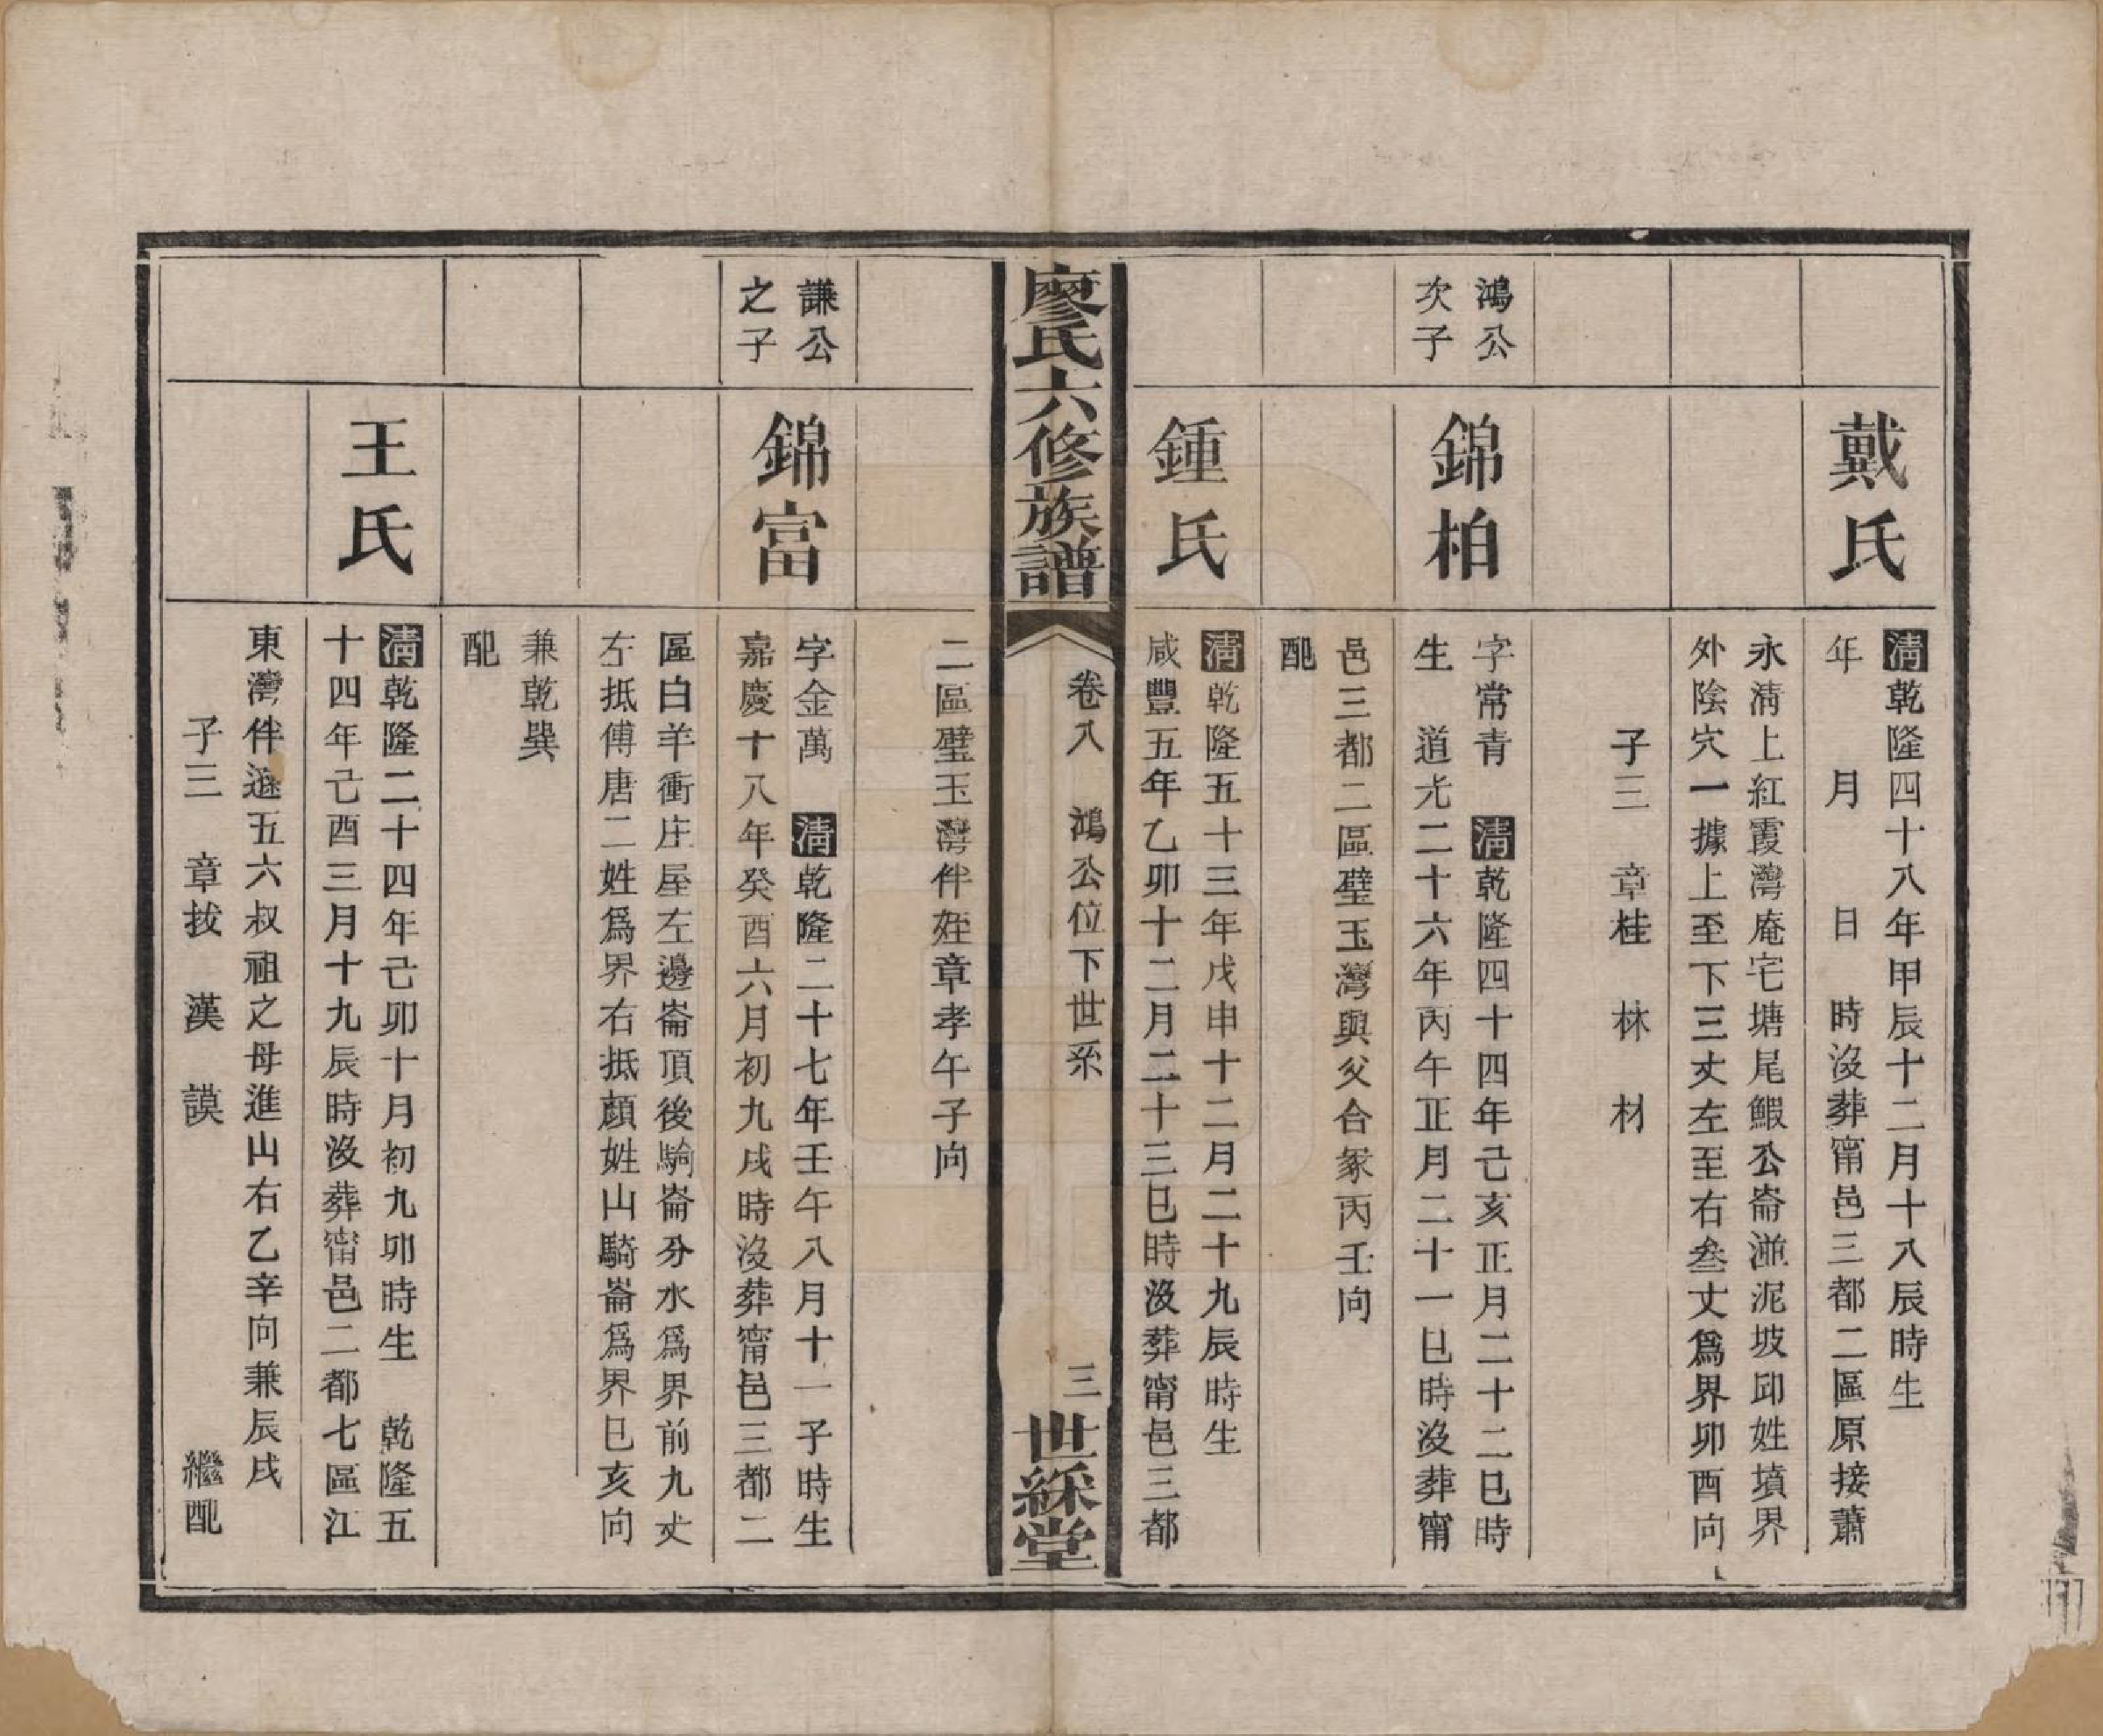 戴氏
清乾隆四十八年甲辰十二月十八辰時生
年　月　日　時沒葬甯邑三都二區原接蕭
永清上紅霞灣庵宅塘尾鰕公崙逧泥坡邱姓墳界
外陰穴一據上至下三丈左至右叁丈爲界卯酉向
子三　章桂　林　材
鴻公
次子
錦柏
字常青　清乾隆四十四年己亥正月二十二巳時
生　道光二十六年丙午正月二十一巳時沒葬甯
邑三都二區璧玉灣與父合冢丙壬向
配
鍾氏
清乾隆五十三年戊申十二月二十九辰時生
咸豐五年乙卯十二月二十三巳時沒葬甯邑三都
廖氏六修族譜
卷八　鴻公位下世系
三
世綵堂
二區璧玉灣伴姪章孝午子向
謙公
之子
錦富
字金萬　清乾隆二十七年壬午八月十一子時生
嘉慶十八年癸酉六月初九戌時沒葬甯邑三都二
區白羊衝庄屋左邊崙頂後騎崙分水爲界前九丈
左抵傅唐二姓爲界右抵顏姓山騎崙爲界巳亥向
兼乾巽
配
王氏
清乾隆二十四年己卯十月初九卯時生　乾隆五
十四年己酉三月十九辰時沒葬甯邑二都七區江
東灣伴遜五六叔祖之母進山右乙辛向兼辰戌
子三　章拔　漢　謨　繼配